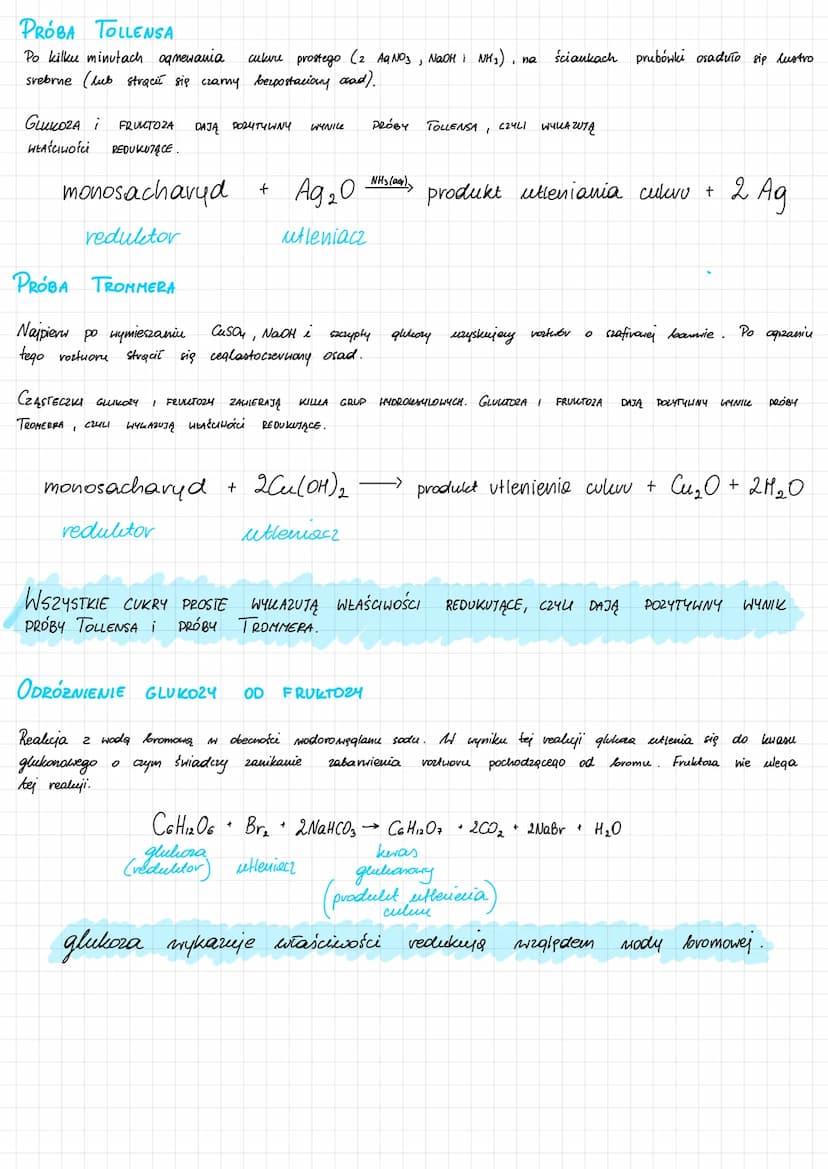 PRÓBA TOLLENSA
Po kilku minutach ogrzewania cukru prostego (z AgNO3, NaOH i NH3), na ściankach probówki osadziło się lustro
srebrne (lub strącił się czarny bezpostaciowy osad).
GLUKOZA i FRUKTOZA DAJĄ POZYTYWNY WYNIK PRÓBY TOLLENSA, CZYLI WYKAZUJĄ
WŁAŚCIWOŚCI REDUKUJĄCE.
monosacharyd + Ag2O NH3(aq)→ produkt utleniania cukru + 2 Ag
reduktor utleniacz
PRÓBA TROMMERA
Najpierw po wymieszaniu CuSO4, NaOH i szczypty glukozy uzyskujemy roztwór o szafirowej barwie. Po ogrzaniu
tego roztworu strącił się ceglastoczerwony osad.
CZĄSTECZKI GLUKOZY I FRUKTOZY ZAWIERAJĄ KILKA GRUP HYDROKSYLOWYCH. GLUKOZA I FRUKTOZA DAJĄ POZYTYWNY WYNIK PRÓBY
TROMERRA, CZYLI WYKAZUJĄ WŁAŚCIWOŚCI REDUKUJĄCE.
monosacharyd + 2Cu(OH)2 → produkt utlenienia cukru + Cu2O + 2H2O
reduktor utleniacz
WSZYSTKIE CUKRY PROSTE WYKAZUJĄ WŁAŚCIWOŚCI REDUKUJĄCE, CZYLI DAJĄ POZYTYWNY WYNIK
PRÓBY TOLLENSA i PRÓBY TROMMERA.
ODRÓŻNIENIE GLUKOZY OD FRUKTOZY
Reakcja z wodą bromową w obecności wodorowęglanu sodu. W wyniku tej reakcji glukoza utlenia się do kwasu
glukonowego o czym świadczy zanikanie zabarwienia roztworu pochodzącego od bromu. Fruktoza nie ulega
tej reakcji.
C6H12O6 + Br2 + 2NaHCO3 → C6H12O7 + 2CO2 + 2NaBr + H2O
glukoza kwas
(reduktor) utleniacz glukonowy
(produkt utlenienia)
cukru
glukoza wykazuje właściwości redukują względem wody bromowej.